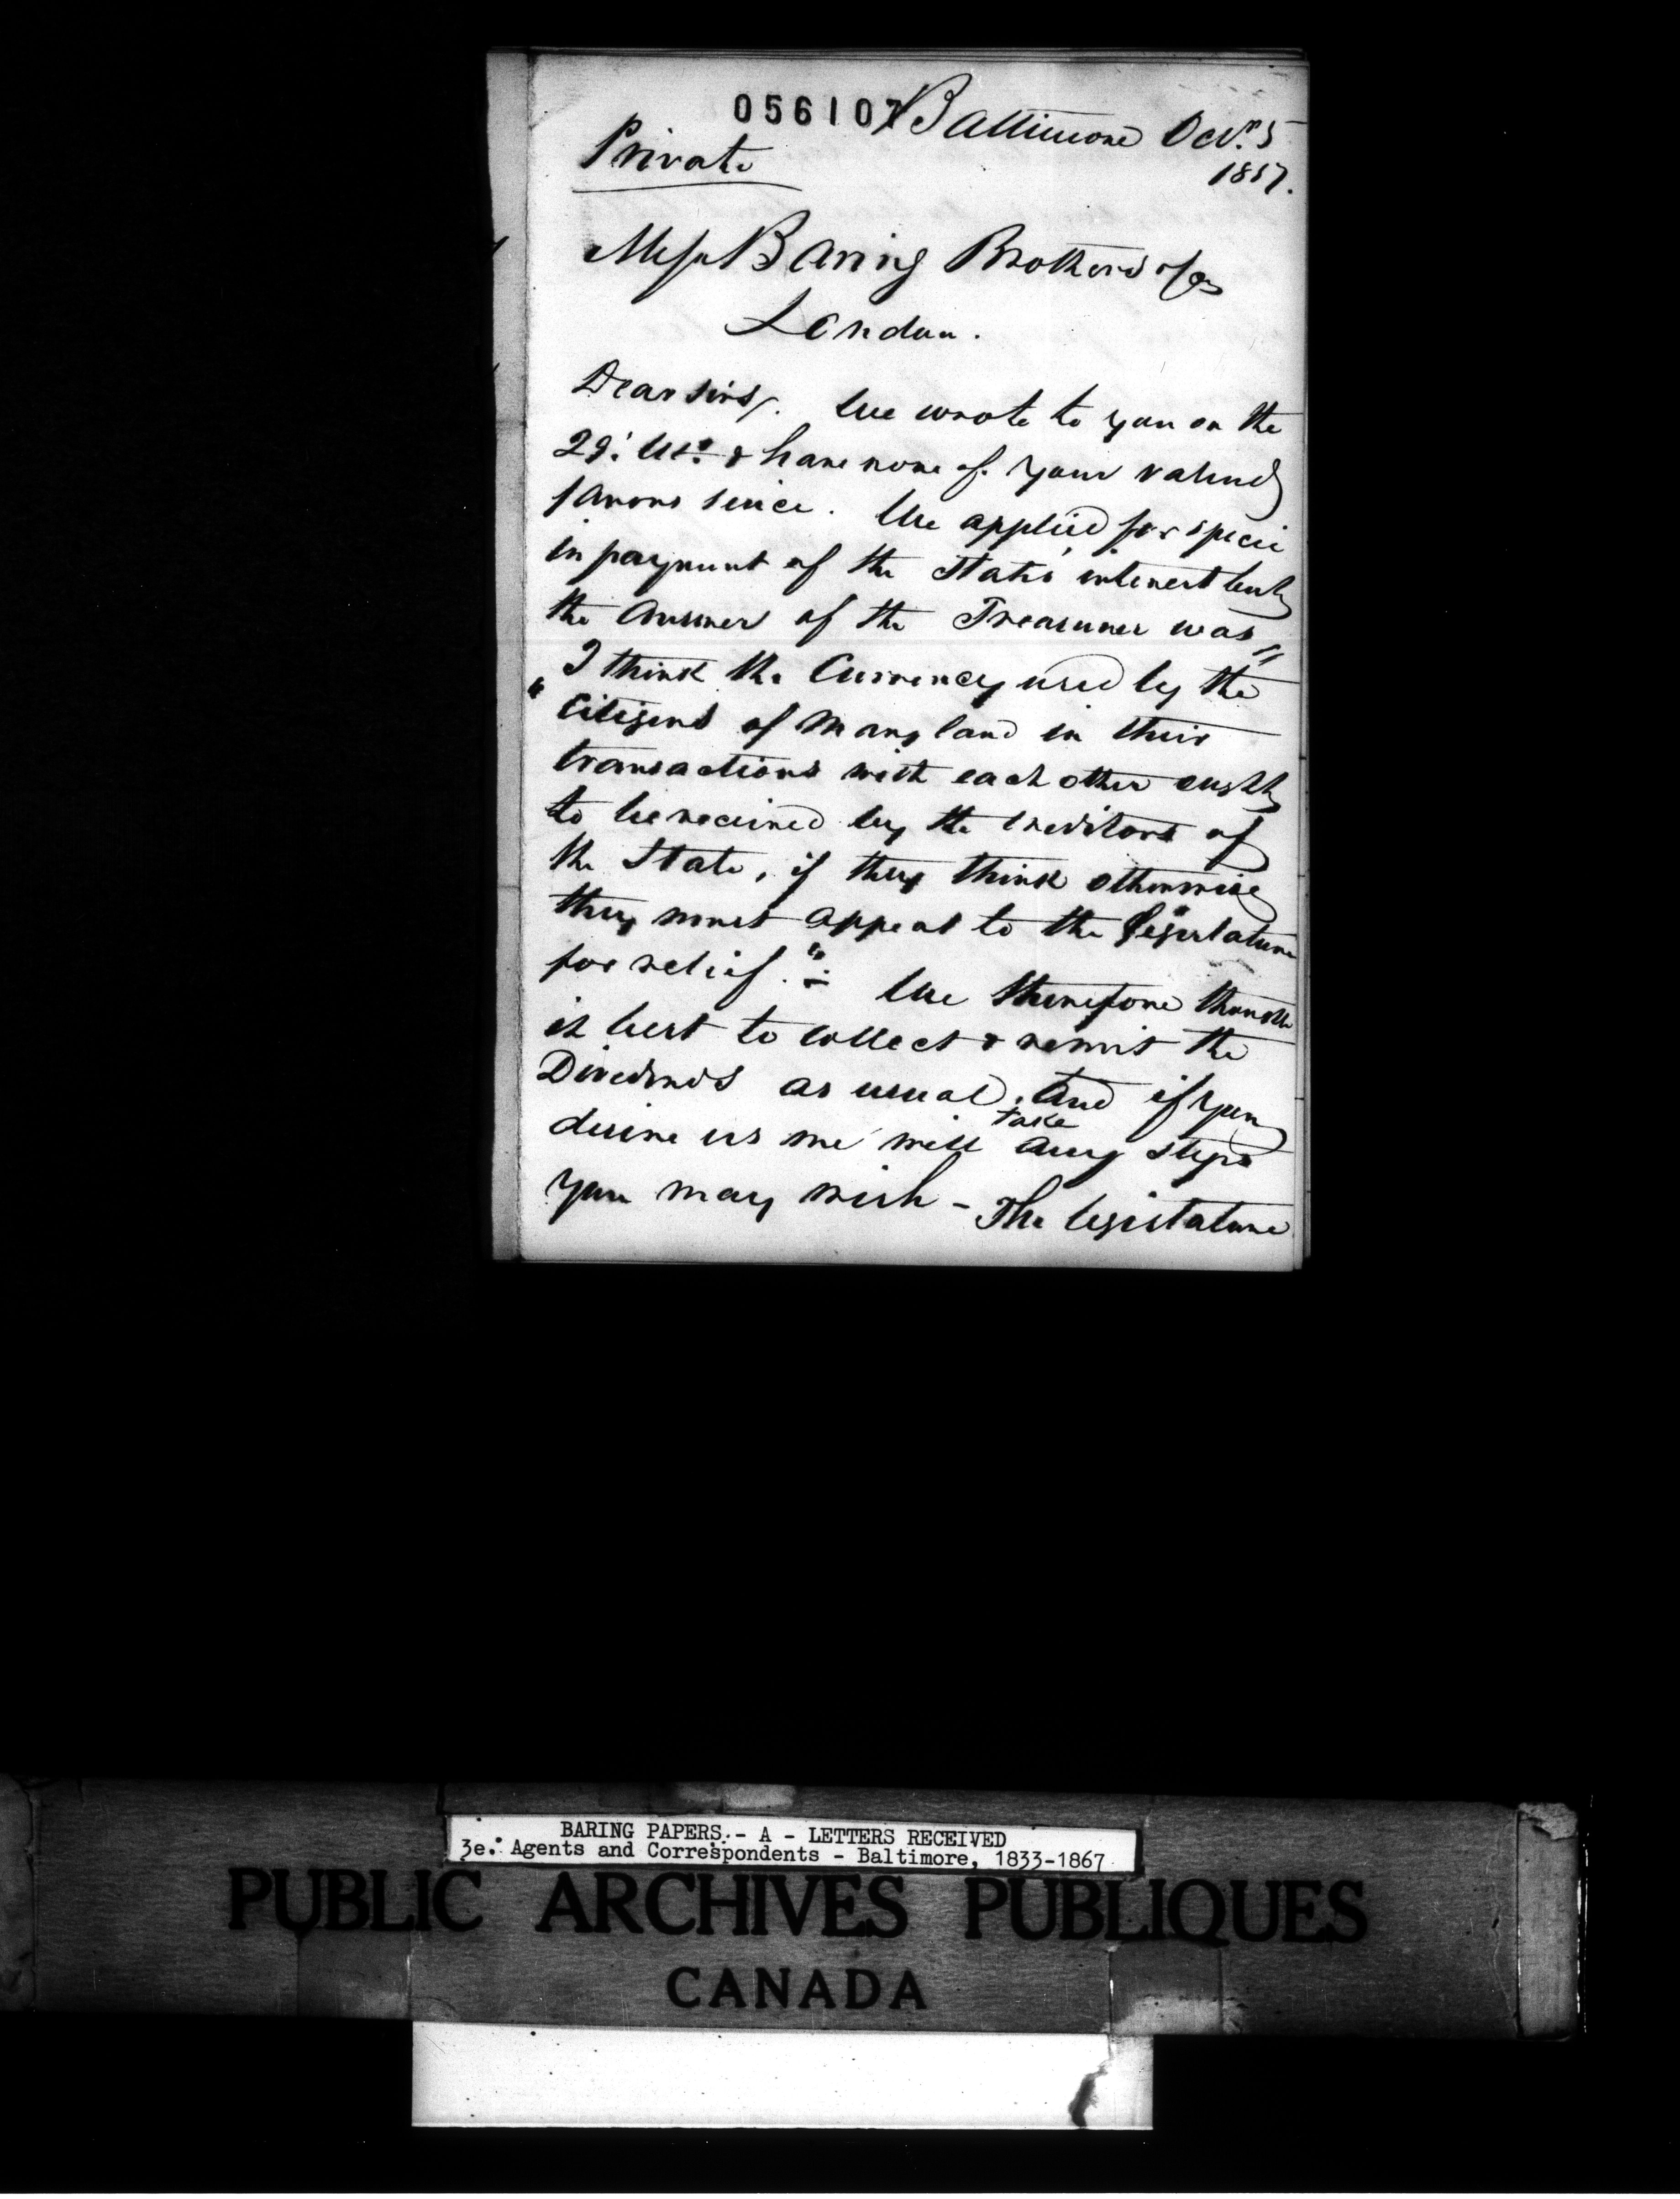 056107 Baltimore Octr. 5
1857.
Private
Messrs Baring Brothers & Co
London.
Dear Sirs/. We wrote to you on the
29' Ulto. & have none of your valued
favors since. We applied for specie
in payment of the State's interest but
the answer of the Treasurer was "
I think the Currency used by the
" Citizens of Maryland in their
transactions with each other ought
to be received by the Creditors of
the State, if they think otherwise
they must appeal to the Legislature
for relief." We therefore thought
it best to collect & remit the
Dividends as usual, and if you
desire us we will take any steps
you may wish - The legislature
BARING PAPERS.- A - LETTERS RECEIVED
3e. Agents and Correspondents - Baltimore, 1833-1867
PUBLIC ARCHIVES PUBLIQUES
CANADA